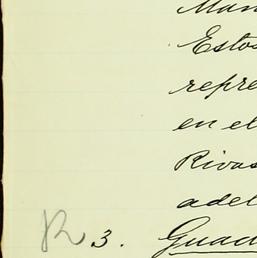 Man
Estos
repre
en el
Rivas
adel
R 3. Guad